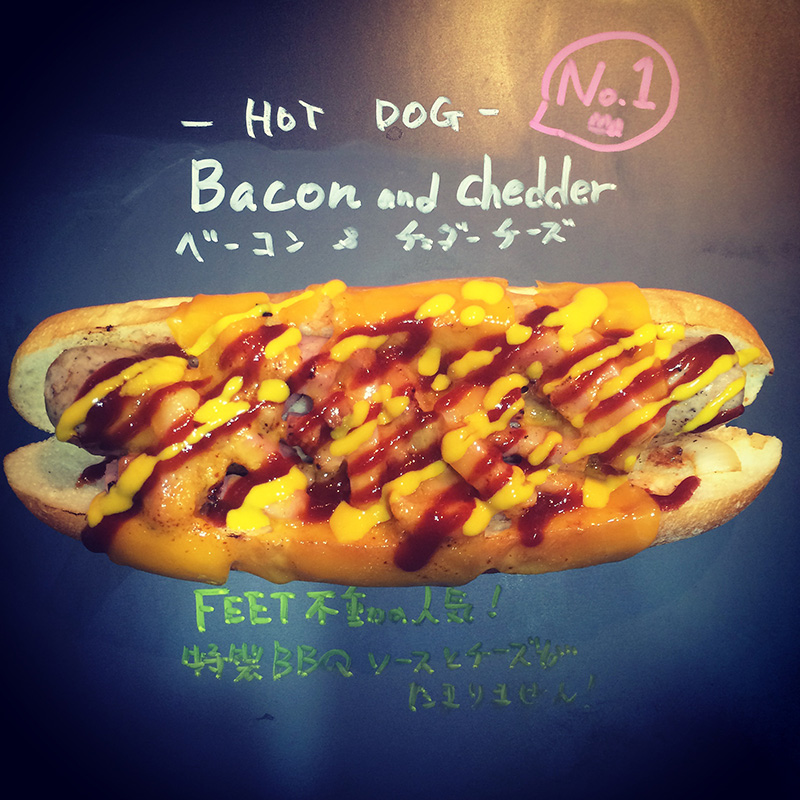 No.1
- HOT DOG -
Bacon and chedder
ベーコン & チェダーチーズ
FEET 不動の人気!
特製BBQソースとチーズが
たまりません!